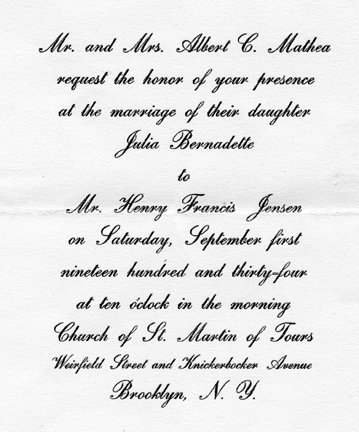 Mr. and Mrs. Albert C. Mathea
request the honor of your presence
at the marriage of their daughter
Julia Bernadette
to
Mr. Henry Francis Jensen
on Saturday, September first
nineteen hundred and thirty-four
at ten o'clock in the morning
Church of St. Martin of Tours
Weirfield Street and Knickerbocker Avenue
Brooklyn, N. Y.